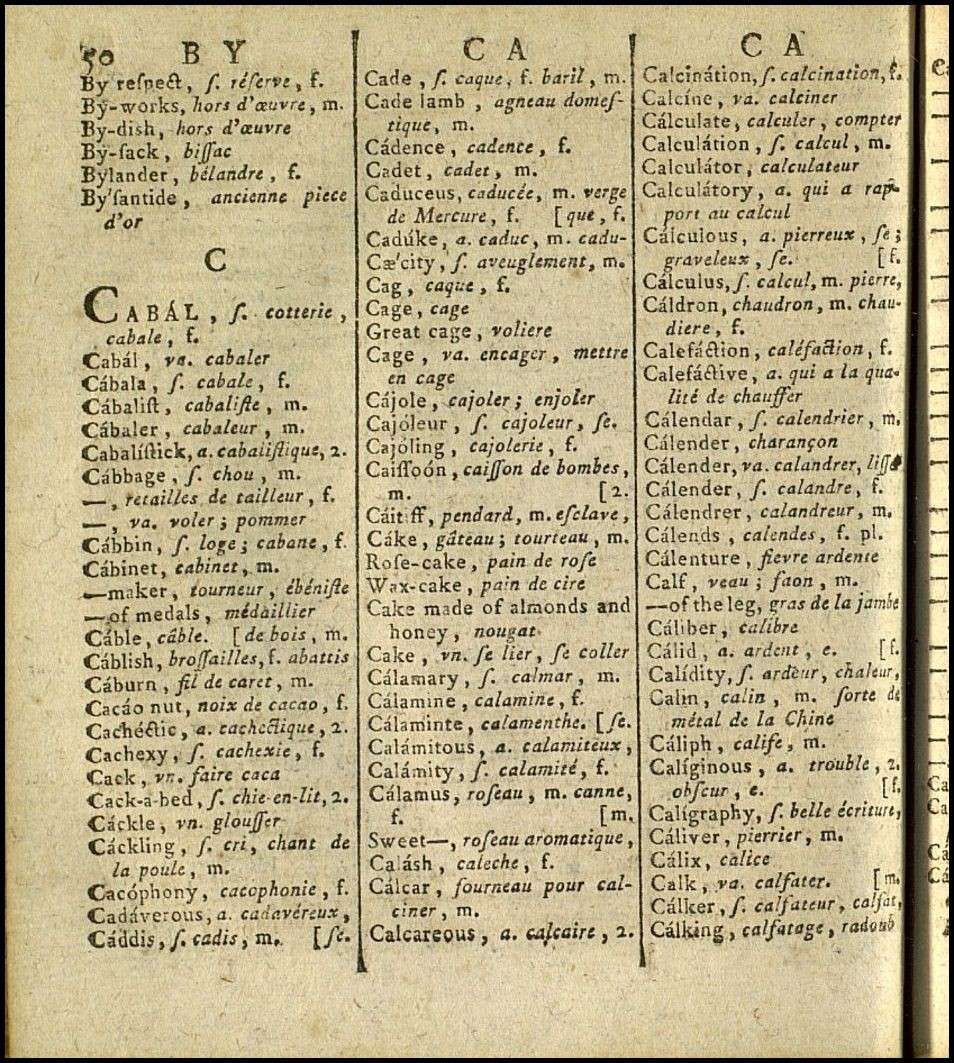 50 B Y
By reſpect, ſ. réſerve, f.
By-works, hors d'œuvre, m.
By-dish, hors d'œuvre
By-ſack, biſſac
Bylander, bélandre, f.
By'ſantide, ancienne piece
d'or
C
CABÁL, ſ. cotterie,
cabale, f.
Cabál, va. cabaler
Cábala, ſ. cabale, f.
Cábaliſt, cabaliſte, m.
Cábaler, cabaleur, m.
Cabalíſtick, a. cabaliſtique, 2.
Cábbage, ſ. chou, m.
—, retailles de tailleur, f.
—, va. voler; pommer
Cábbin, ſ. loge; cabane, f.
Cábinet, cabinet, m.
—maker, tourneur, ébéniſte
—of medals, médaillier
Cáble, câble. [de bois, m.
Cáblish, broſſailles, f. abattis
Cáburn, fil de caret, m.
Cacáo nut, noix de cacao, f.
Cachéctic, a. cachectique, 2.
Cachexy, ſ. cachexie, f.
Cack, vn. faire caca
Cack-a-bed, ſ. chie-en-lit, 2.
Cáckle, vn. glouſſer
Cáckling, ſ. cri, chant de
la poule, m.
Cacóphony, cacophonie, f.
Cadáverous, a. cadavéreux,
Cáddis, ſ. cadis, m. [ſe.
C A
Cade, ſ. caque, f. baril, m.
Cade lamb, agneau domeſ-
tique, m.
Cádence, cadence, f.
Cadet, cadet, m.
Caduceus, caducée, m. verge
de Mercure, f. [que, f.
Cadúke, a. caduc, m. cadu-
Cæ'city, ſ. aveuglement, m.
Cag, caque, f.
Cage, cage
Great cage, voliere
Cage, va. encager, mettre
en cage
Cájole, cajoler; enjoler
Cajóleur, ſ. cajoleur, ſe.
Cajóling, cajolerie, f.
Caiſſoón, caiſſon de bombes,
m. [2.
Cáitiff, pendard, m. eſclave,
Cáke, gâteau; tourteau, m.
Roſe-cake, pain de roſe
Wax-cake, pain de cire
Cake made of almonds and
honey, nougat
Cake, vn. ſe lier, ſe coller
Cálamary, ſ. calmar, m.
Cálamine, calamine, f.
Cálaminte, calamenthe. [ſe.
Calámitous, a. calamiteux,
Calámity, ſ. calamité, f.
Cálamus, roſeau, m. canne,
f. [m.
Sweet—, roſeau aromatique,
Calásh, caleche, f.
Cálcar, fourneau pour cal-
ciner, m.
Calcareous, a. calcaire, 2.
C A
Calcinátion, ſ. calcination, f.
Calcíne, va. calciner
Cálculate, calculer, compter
Calculátion, ſ. calcul, m.
Calculátor, calculateur
Calculátory, a. qui a rap-
port au calcul
Cálculous, a. pierreux, ſe;
graveleux, ſe. [f.
Cálculus, ſ. calcul, m. pierre,
Cáldron, chaudron, m. chau-
diere, f.
Calefáction, caléfaction, f.
Calefáctive, a. qui a la qua-
lité de chauffer
Cálendar, ſ. calendrier, m.
Cálender, charançon
Cálender, va. calandrer,
Cálender, ſ. calandre, f.
Cálendrer, calandreur, m.
Cálends, calendes, f. pl.
Cálenture, fievre ardente
Calf, veau; faon, m.
—of the leg, gras de la jambe
Cáliber, calibre
Cálid, a. ardent, e. [f.
Calídity, ſ. ardeur, chaleur,
Calin, calin, m. ſorte de
métal de la Chine
Cáliph, calife, m.
Calíginous, a. trouble, 2.
obſcur, e. [f.
Calígraphy, ſ. belle écriture,
Cáliver, pierrier, m.
Cálix, calice
Calk, va. calfater. [m.
Cálker, ſ. calfateur, calfat,
Cálking, calfatage, radoub